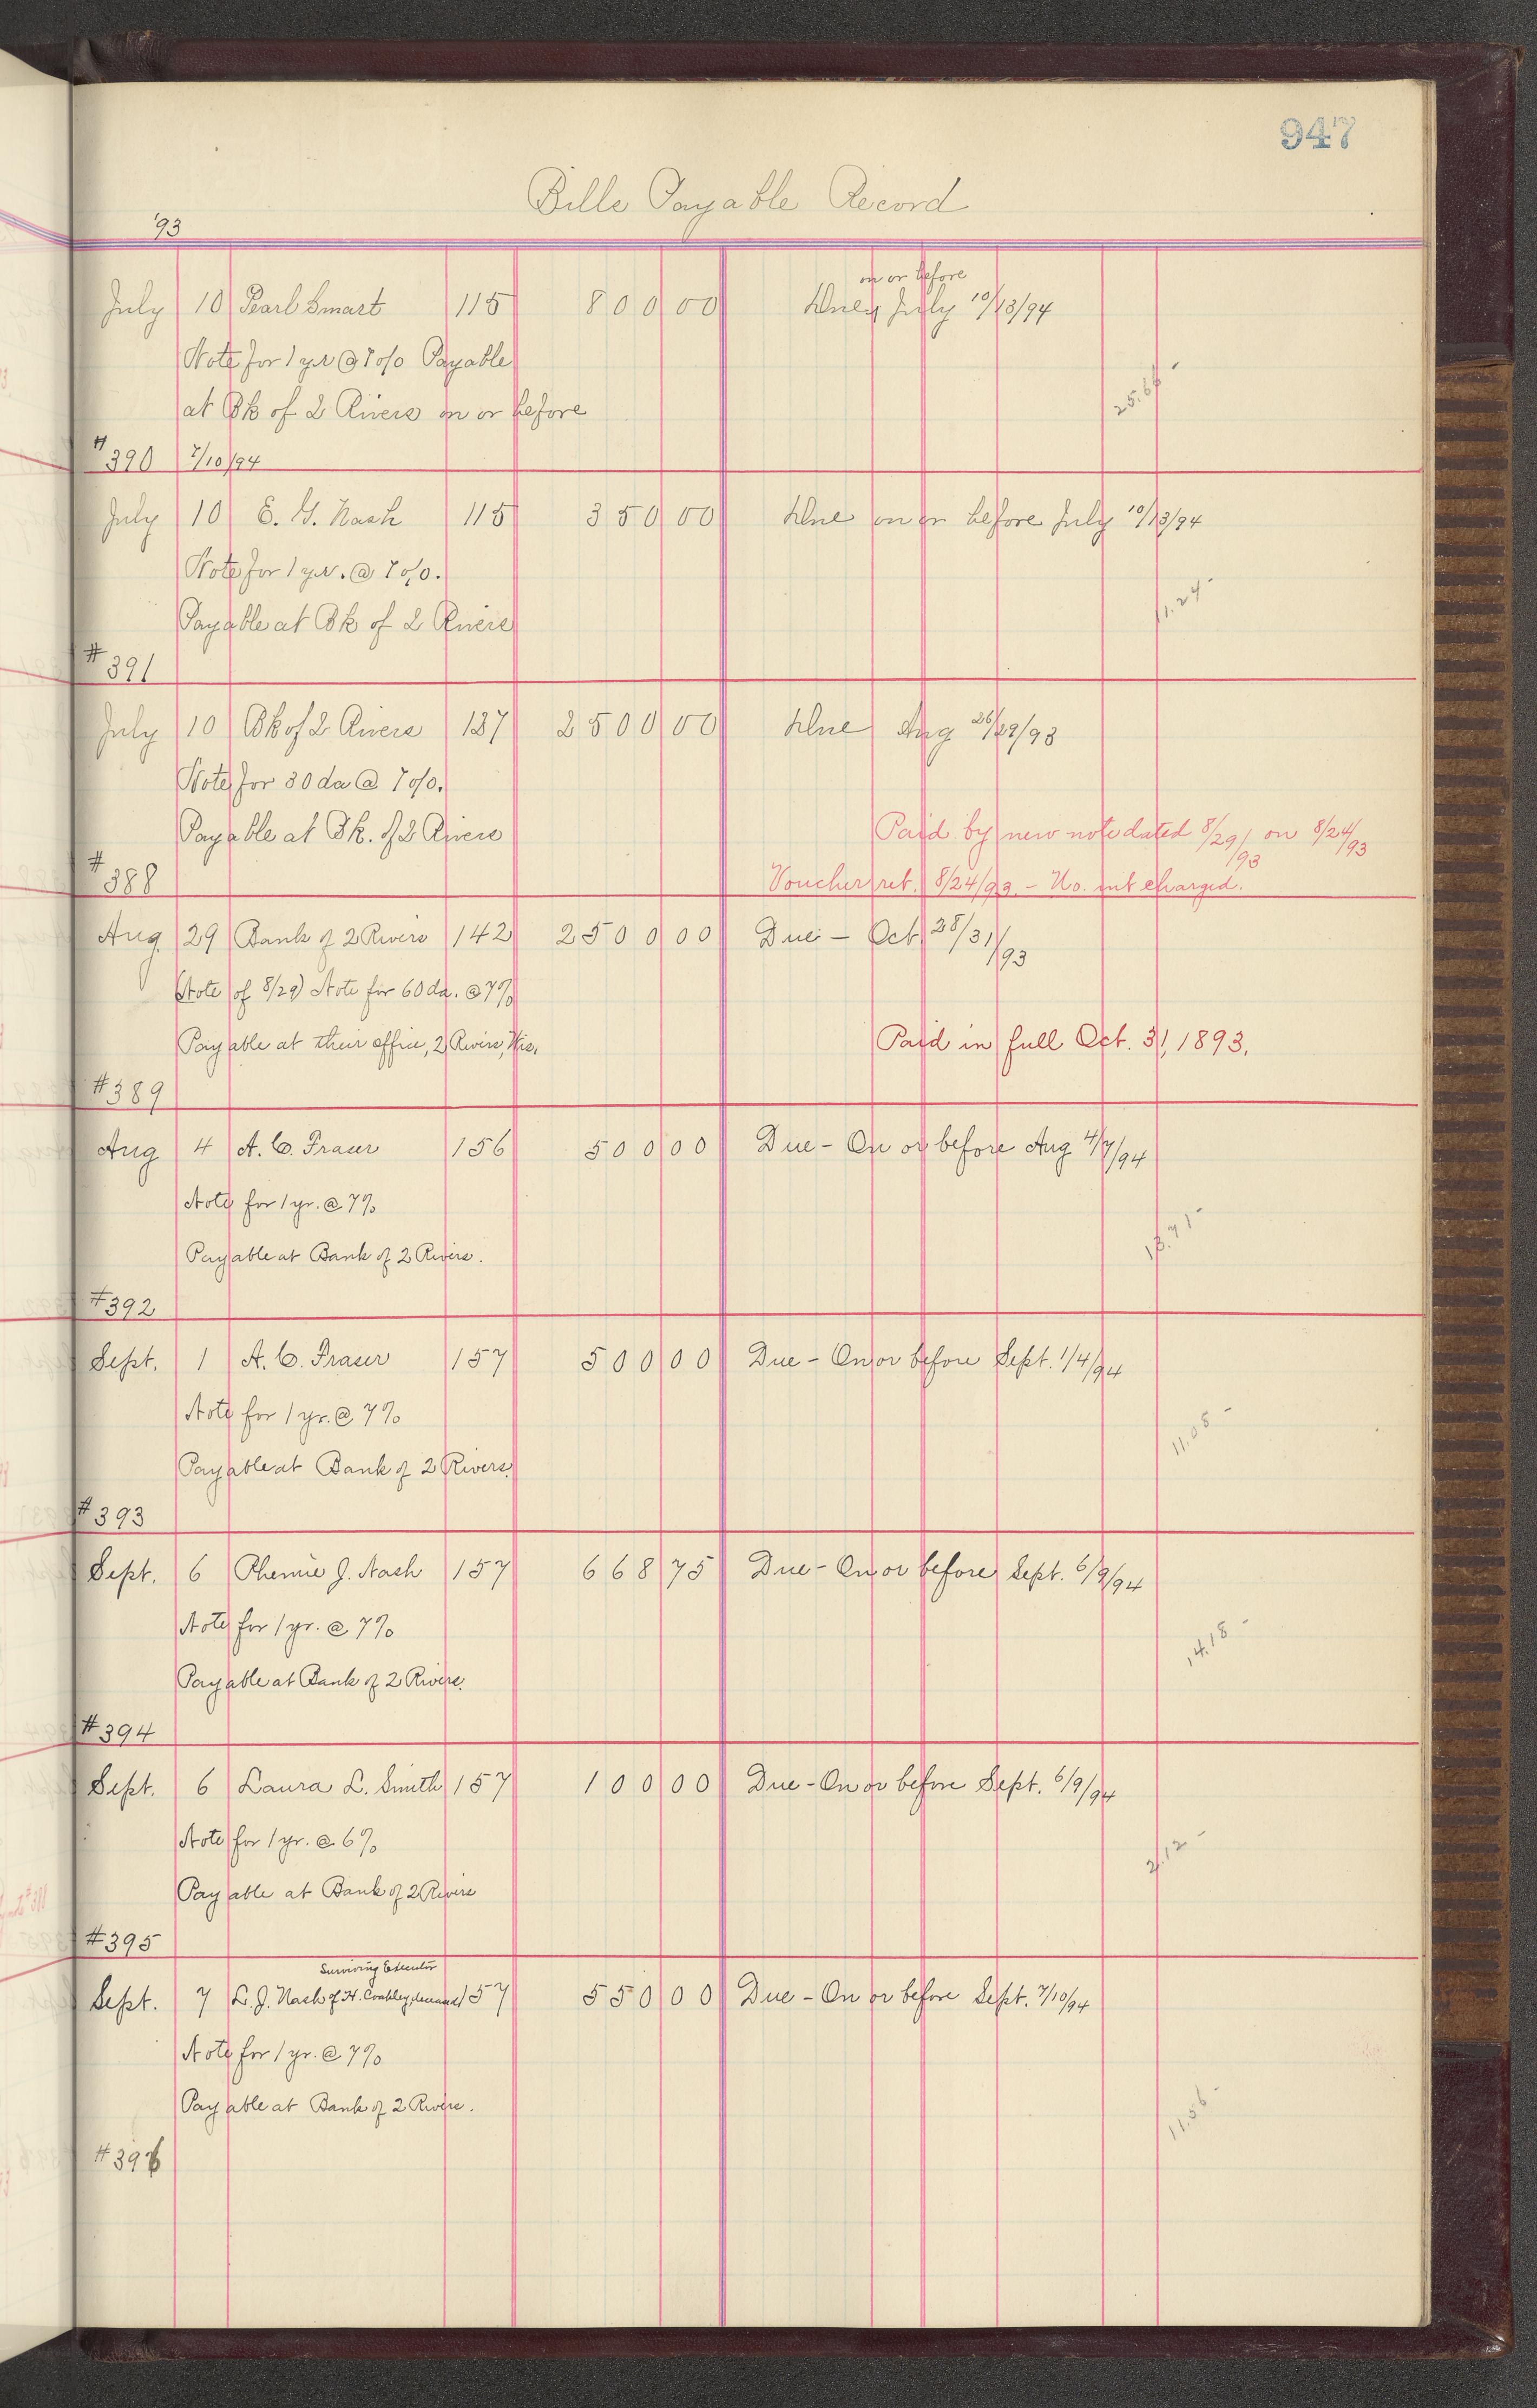 947
Bills Payable Record
'93
on or before
July 10 Pearl Smart 115 800 00 Due July 10/13/94
Note for 1 yr @ 7 o/o Payable
at Bk of 2 Rivers on or before
25.68 -
#390 7/10/94
July 10 E. G. Nash 115 350 00 Due on or before July 10/13/94
Note for 1 yr. @ 7 o/o.
11.24 -
Payable at Bk of 2 Rivers
#391
July 10 Bk of 2 Rivers 137 2500 00 Due Aug 26/29/93
Note for 30 da @ 7 o/o.
Payable at Bk. of 2 Rivers Paid by new note dated 8/29/93 on 8/24/93
#388 Voucher ret. 8/24/93. - No. int charged.
Aug 29 Bank of 2 Rivers 142 2500 00 Due - Oct 28/31/93
(Note of 8/29) Note for 60 da. @ 7%
Payable at their office, 2 Rivers, Wis. Paid in full Oct. 31, 1893.
#389
Aug 4 A. C. Fraser 156 500 00 Due - On or before Aug 4/7/94
Note for 1 yr. @ 7%
13.71 -
Payable at Bank of 2 Rivers.
#392
Sept. 1 A. C. Fraser 157 500 00 Due - On or before Sept. 1/4/94
Note for 1 yr. @ 7%
11.08 -
Payable at Bank of 2 Rivers.
#393
Sept. 6 Phemie J. Nash 157 668 75 Due - On or before Sept. 6/9/94
Note for 1 yr. @ 7%
14.18 -
Payable at Bank of 2 Rivers.
#394
Sept. 6 Laura L. Smith 157 100 00 Due - On or before Sept. 6/9/94
Note for 1 yr. @ 6%
2.12 -
Payable at Bank of 2 Rivers
#395
Surviving Executor
Sept. 7 L. J. Nash of H. 157 550 00 Due - On or before Sept. 7/10/94
Note for 1 yr. @ 7%
Payable at Bank of 2 Rivers.
11.56 -
#396